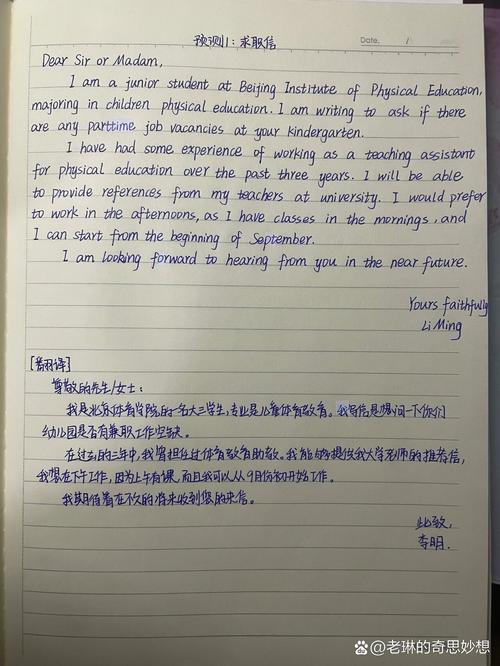 预测1：求职信
Date. /
Dear Sir or Madam,
I am a junior student at Beijing Institute of Physical Education,
majoring in children physical education. I am writing to ask if there
are any parttime job vacancies at your kindergarten.
I have had some experience of working as a teaching assistant
for physical education over the past three years. I will be able
to provide references from my teachers at university. I would prefer
to work in the afternoons, as I have classes in the mornings, and
I can start from the beginning of September.
I am looking forward to hearing from you in the near future.
Yours faithfully
Li Ming
[翻译]
尊敬的先生/女士：
我是北京体育学院的一名大三学生，专业是儿童体育教育。我写信是想问一下你们
幼儿园是否有兼职工作空缺。
在过去的三年中，我曾担任过体育教育助教。我能够提供我大学老师的推荐信，
我想在下午工作，因为上午有课，而且我可以从9月份初开始工作。
我期待着在不久的将来收到您的来信。
此致，
李明.
老琳的奇思妙想